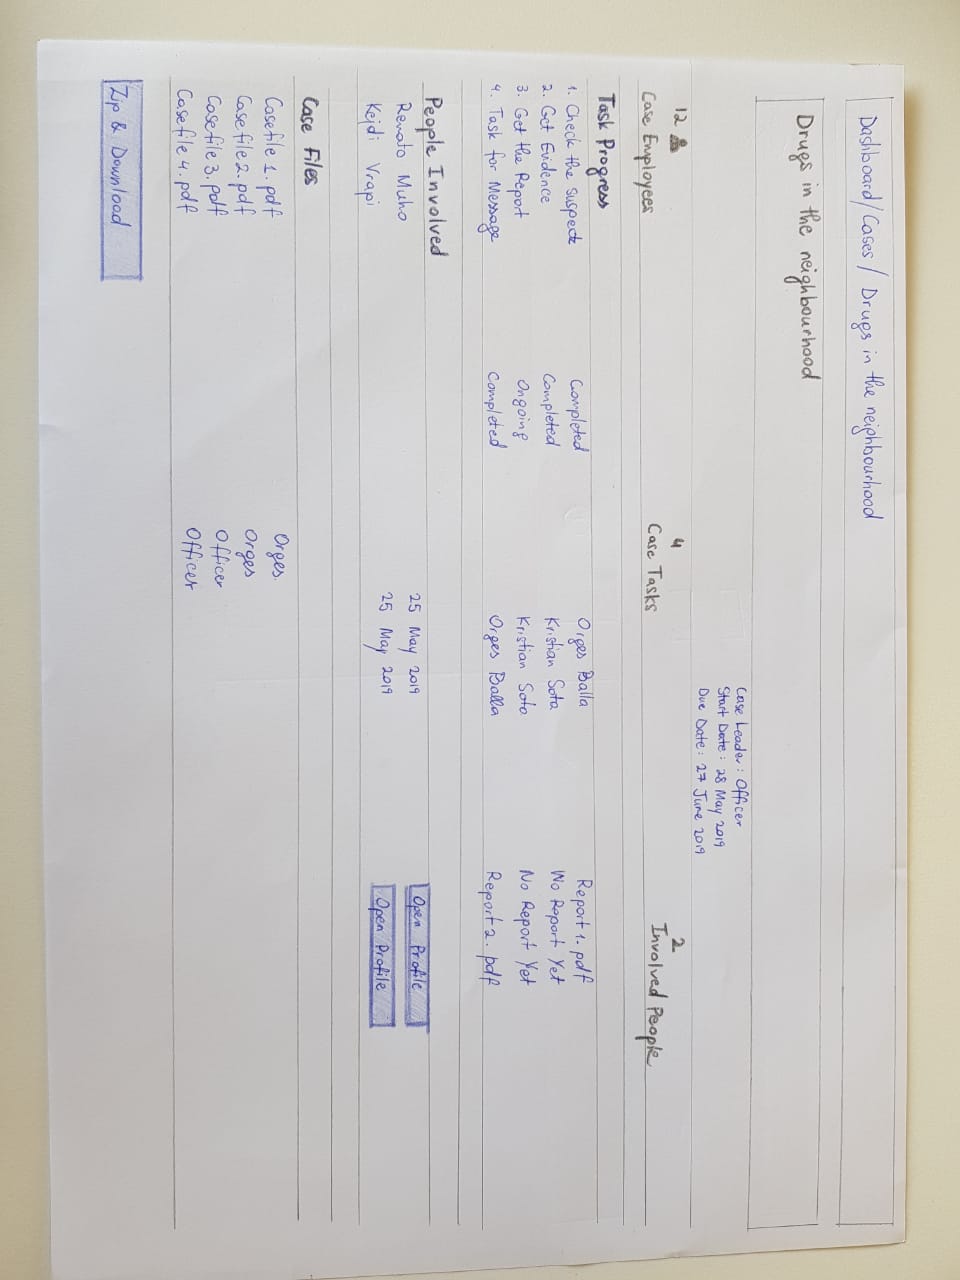 Dashboard/Cases/Drugs in the neighbourhood
Drugs in the neighbourhood
Case Leader: Officer
Start Date: 28 May 2019
Due Date: 27 June 2019
12 4 2
Case Employees Case Tasks Involved People
Task Progress
1. Check the suspect Completed Orges Balla Report 1.pdf
2. Get Evidence Completed Kristian Sota No Report Yet
3. Get the Report Ongoing Kristian Soto No Report Yet
4. Task for Message Completed Orges Balla Report 2.pdf
People Involved
Renato Muho 25 May 2019 Open Profile
Kejdi Vrapi 25 May 2019 Open Profile
Case Files
Casefile 1.pdf Orges.
Casefile 2.pdf Orges
Casefile 3.pdf Officer
Casefile 4.pdf Officer
Zip & Download